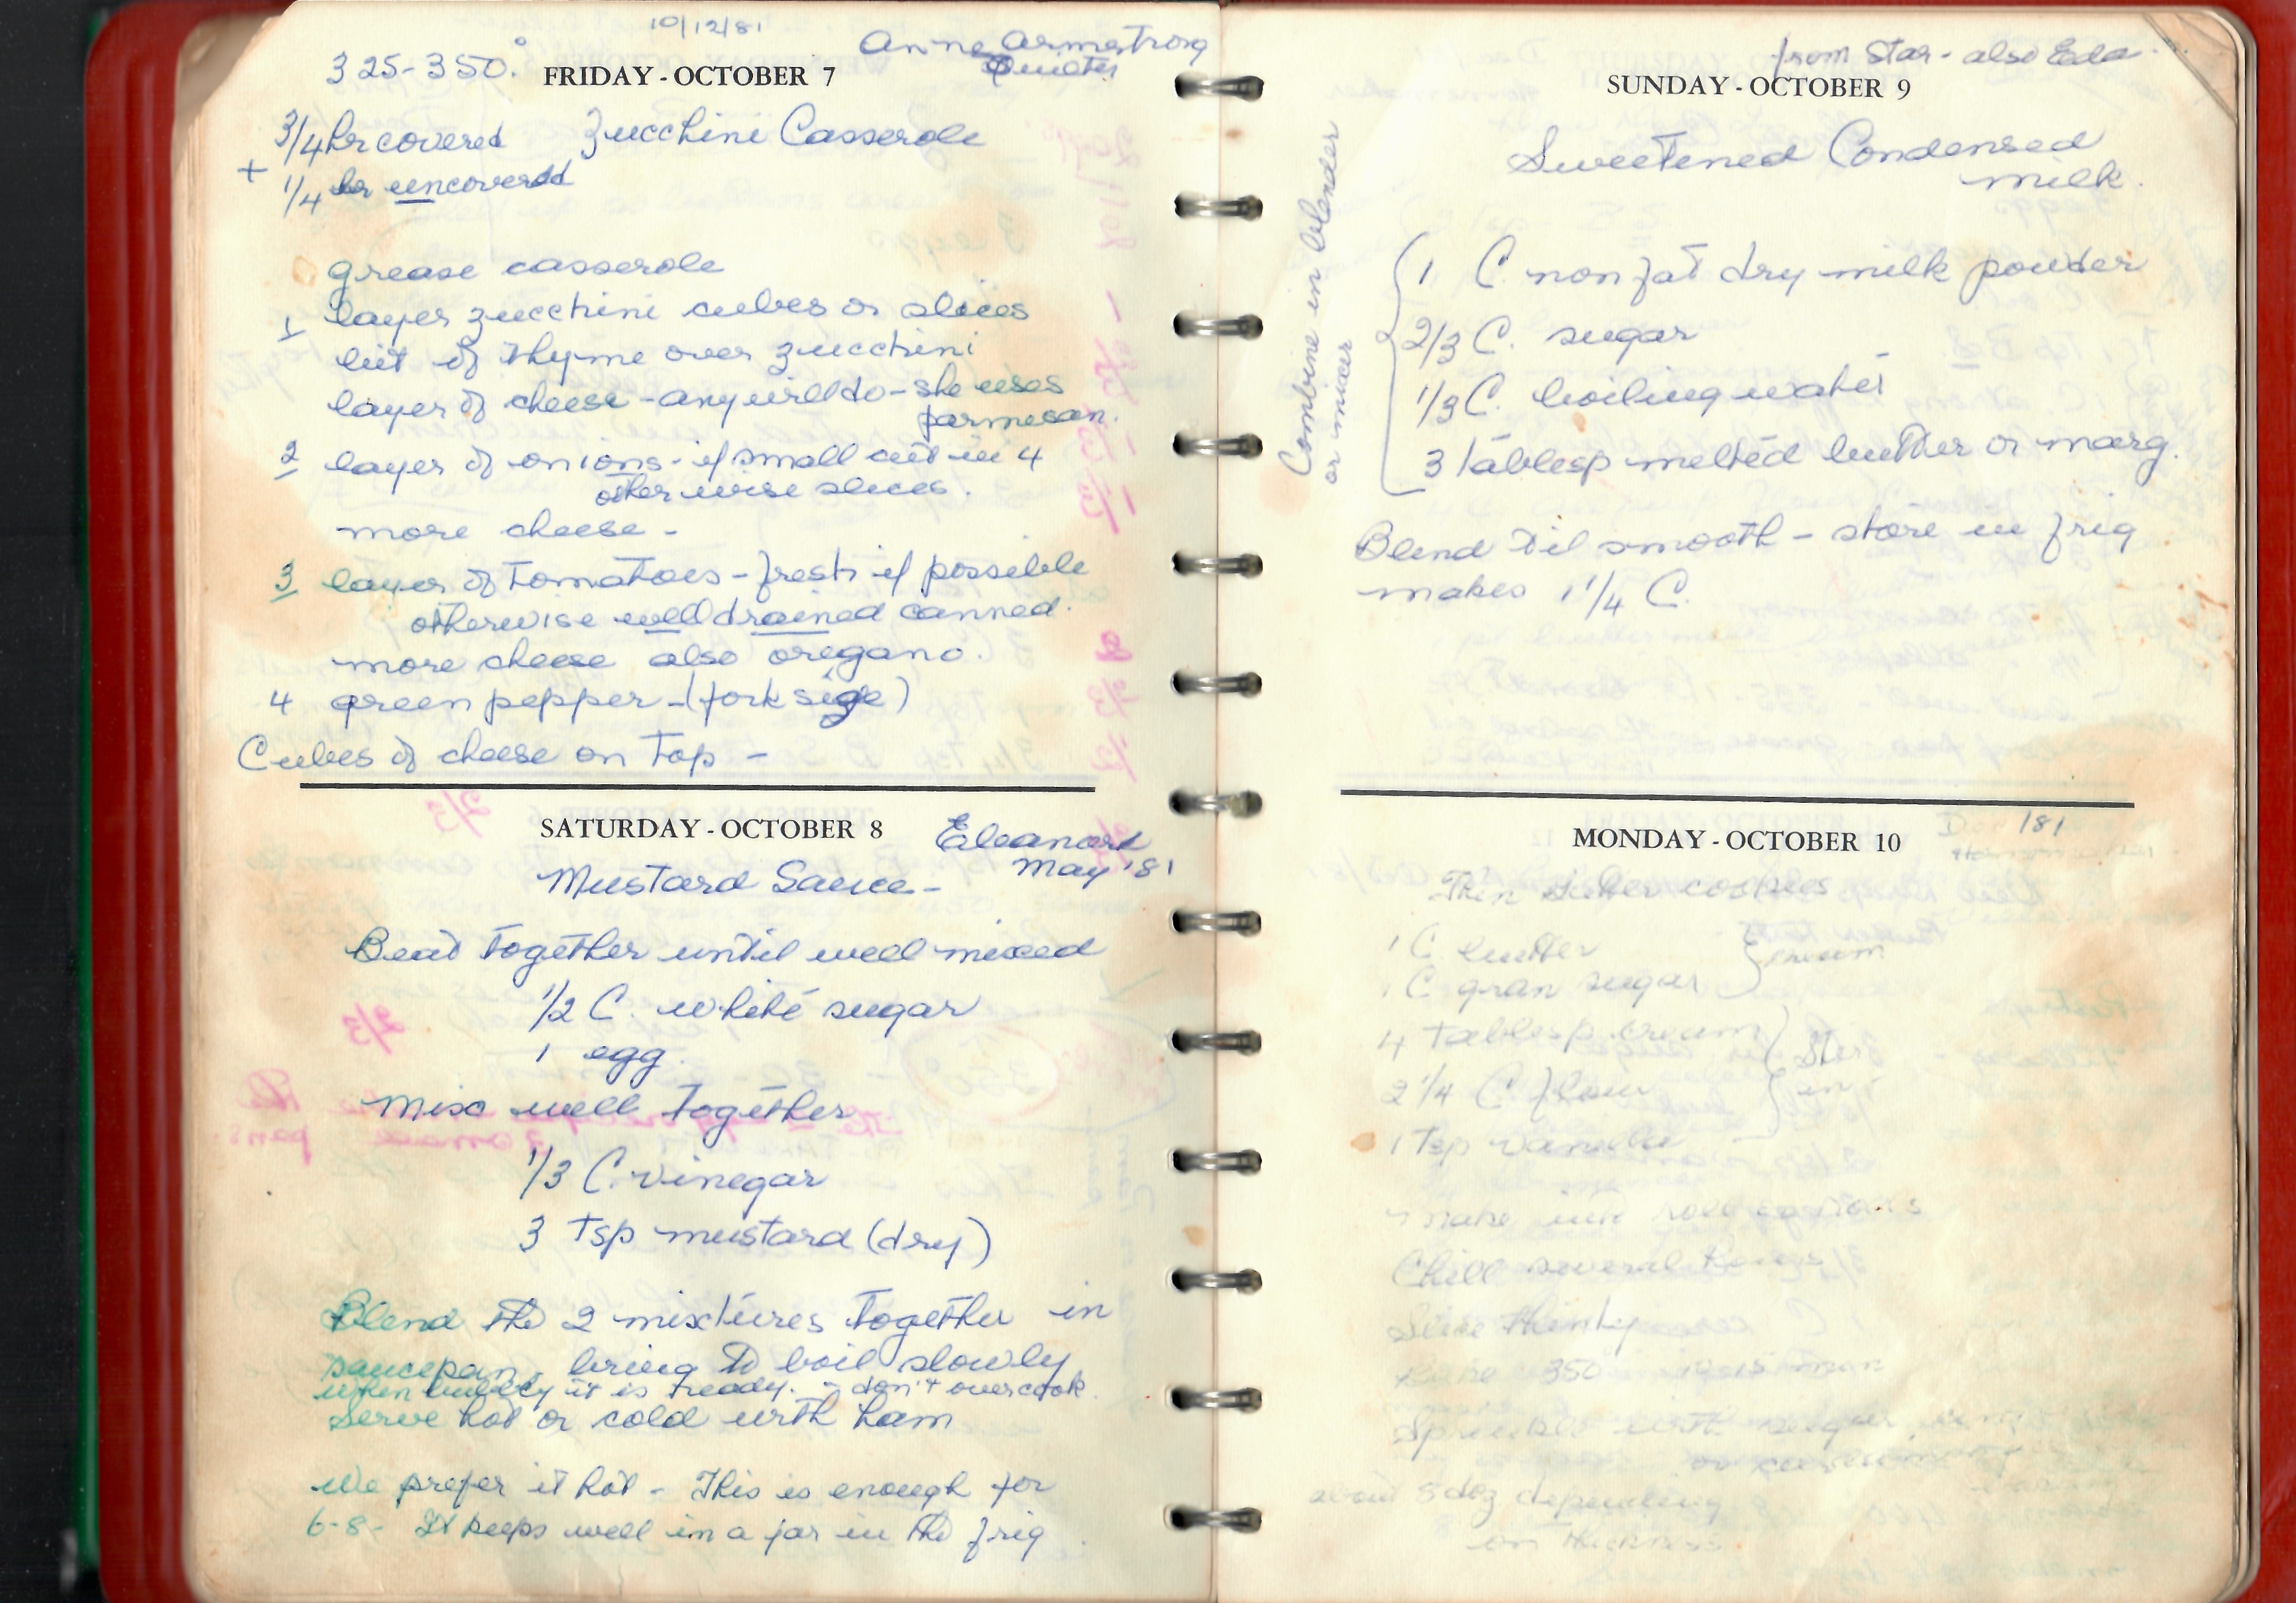 10/12/81
325-350°
Anne Armstrong
Quilter
FRIDAY - OCTOBER 7
3/4 hr covered
Zucchini Casserole
+
1/4 hr uncovered
grease casserole
1 layer zucchini cubes or slices
bit of thyme over zucchini
layer of cheese - any will do - she uses
parmesan.
2 layer of onions - if small cut in 4
otherwise slices.
more cheese -
3 layer of tomatoes - fresh if possible
otherwise well drained canned.
more cheese also oregano.
4 green pepper - (fork size)
Cubes of cheese on top -
SATURDAY - OCTOBER 8
Eleanor
May '81
Mustard Sauce -
Beat together until well mixed
1/2 C. white sugar
1 egg.
Mix well together
1/3 C. vinegar
3 tsp mustard (dry)
Blend the 2 mixtures together in
saucepan, bring to boil slowly
when bubbly it is ready. - don't overcook.
Serve hot or cold with ham
We prefer it hot - This is enough for
6-8 - It keeps well in a jar in the frig
from Star - also Eda
SUNDAY - OCTOBER 9
Sweetened Condensed
milk.
Combine in blender
or mixer
1 C. non fat dry milk powder
2/3 C. sugar
1/3 C. boiling water
3 tablesp melted butter or marg.
Blend til smooth - store in frig
makes 1 1/4 C.
/81
MONDAY - OCTOBER 10
Thin butter cookies
1 C. butter
1 C gran sugar
cream
4 tablesp. cream
2 1/4 C flour
Stir
in
1 tsp vanilla
make into roll
Chill several hours
Slice thinly
Bake 350° 12-15 min
Sprinkle with sugar
or
about 8 doz depending
on thickness